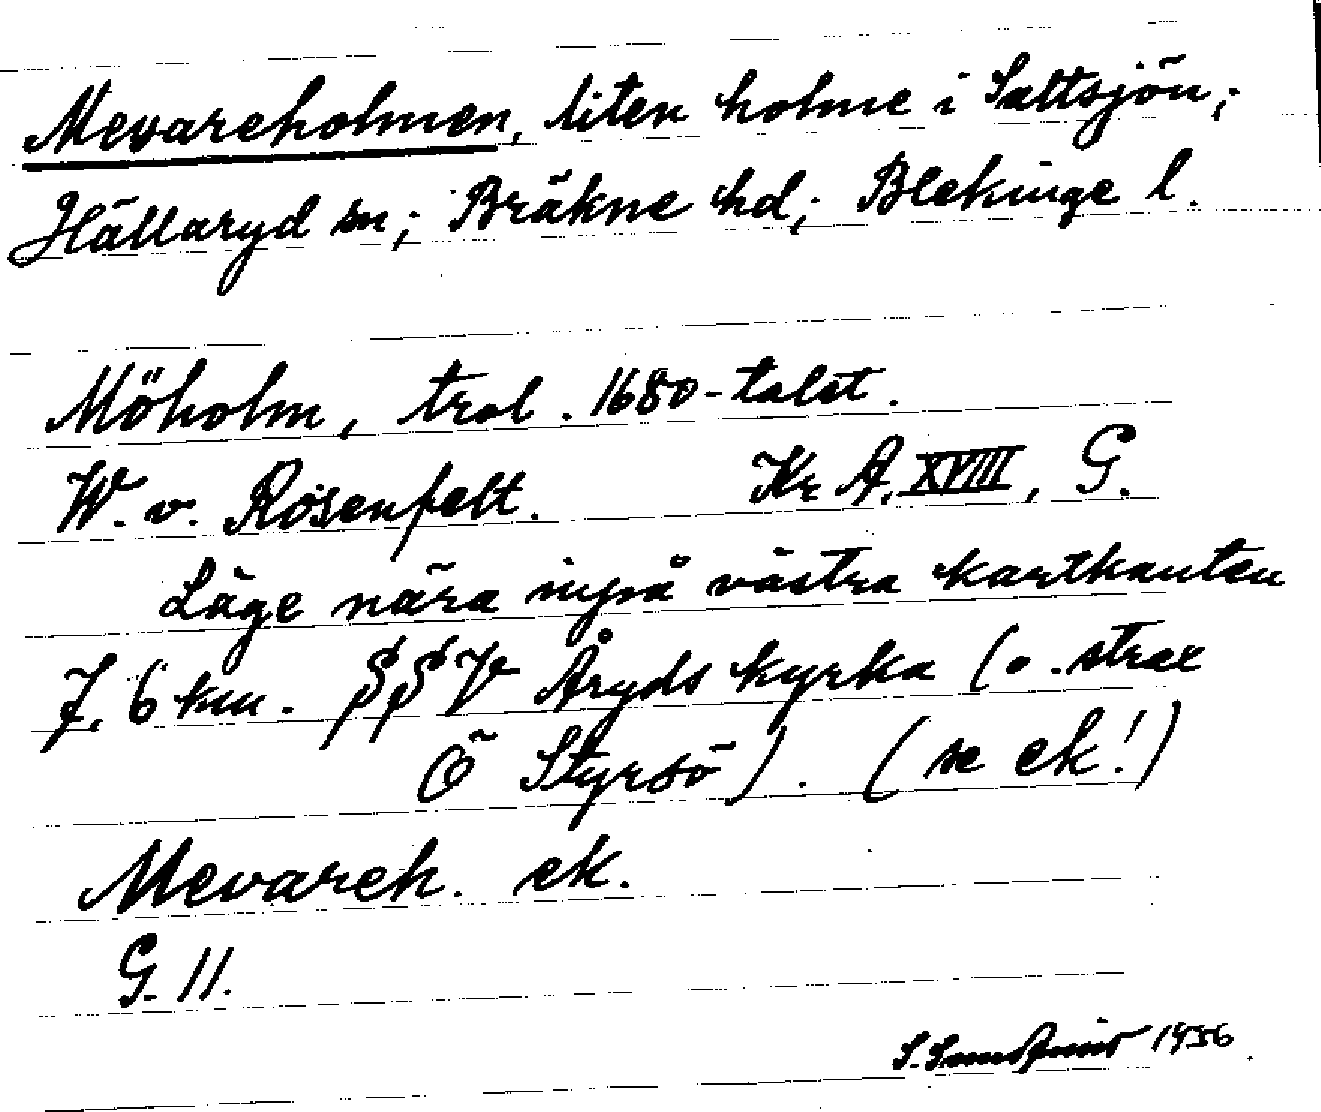 Mevareholmen, liten holme i Saltsjön;
Hällaryd sn; Bräkne hd; Blekinge l.
Möholm, trol. 1680-talet.
W. v. Rosenfelt. Kr A. XVIII, G.
Läge nära inpå västra kartkanten
7,6 km. SSV Åryds kyrka (o. strax
Ö Styrsö). (se ek!)
Mevareh. ek.
G. 11.
S. 1956